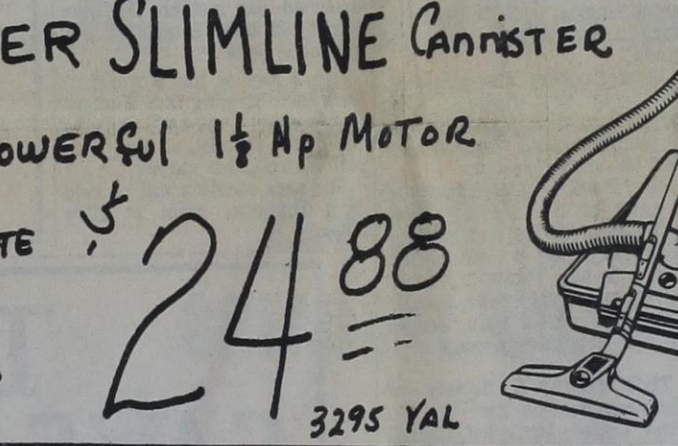 ER SLIMLINE CANNISTER
OWERFUL 1 1/8 HP MOTOR
TE $24 88
3295 VAL